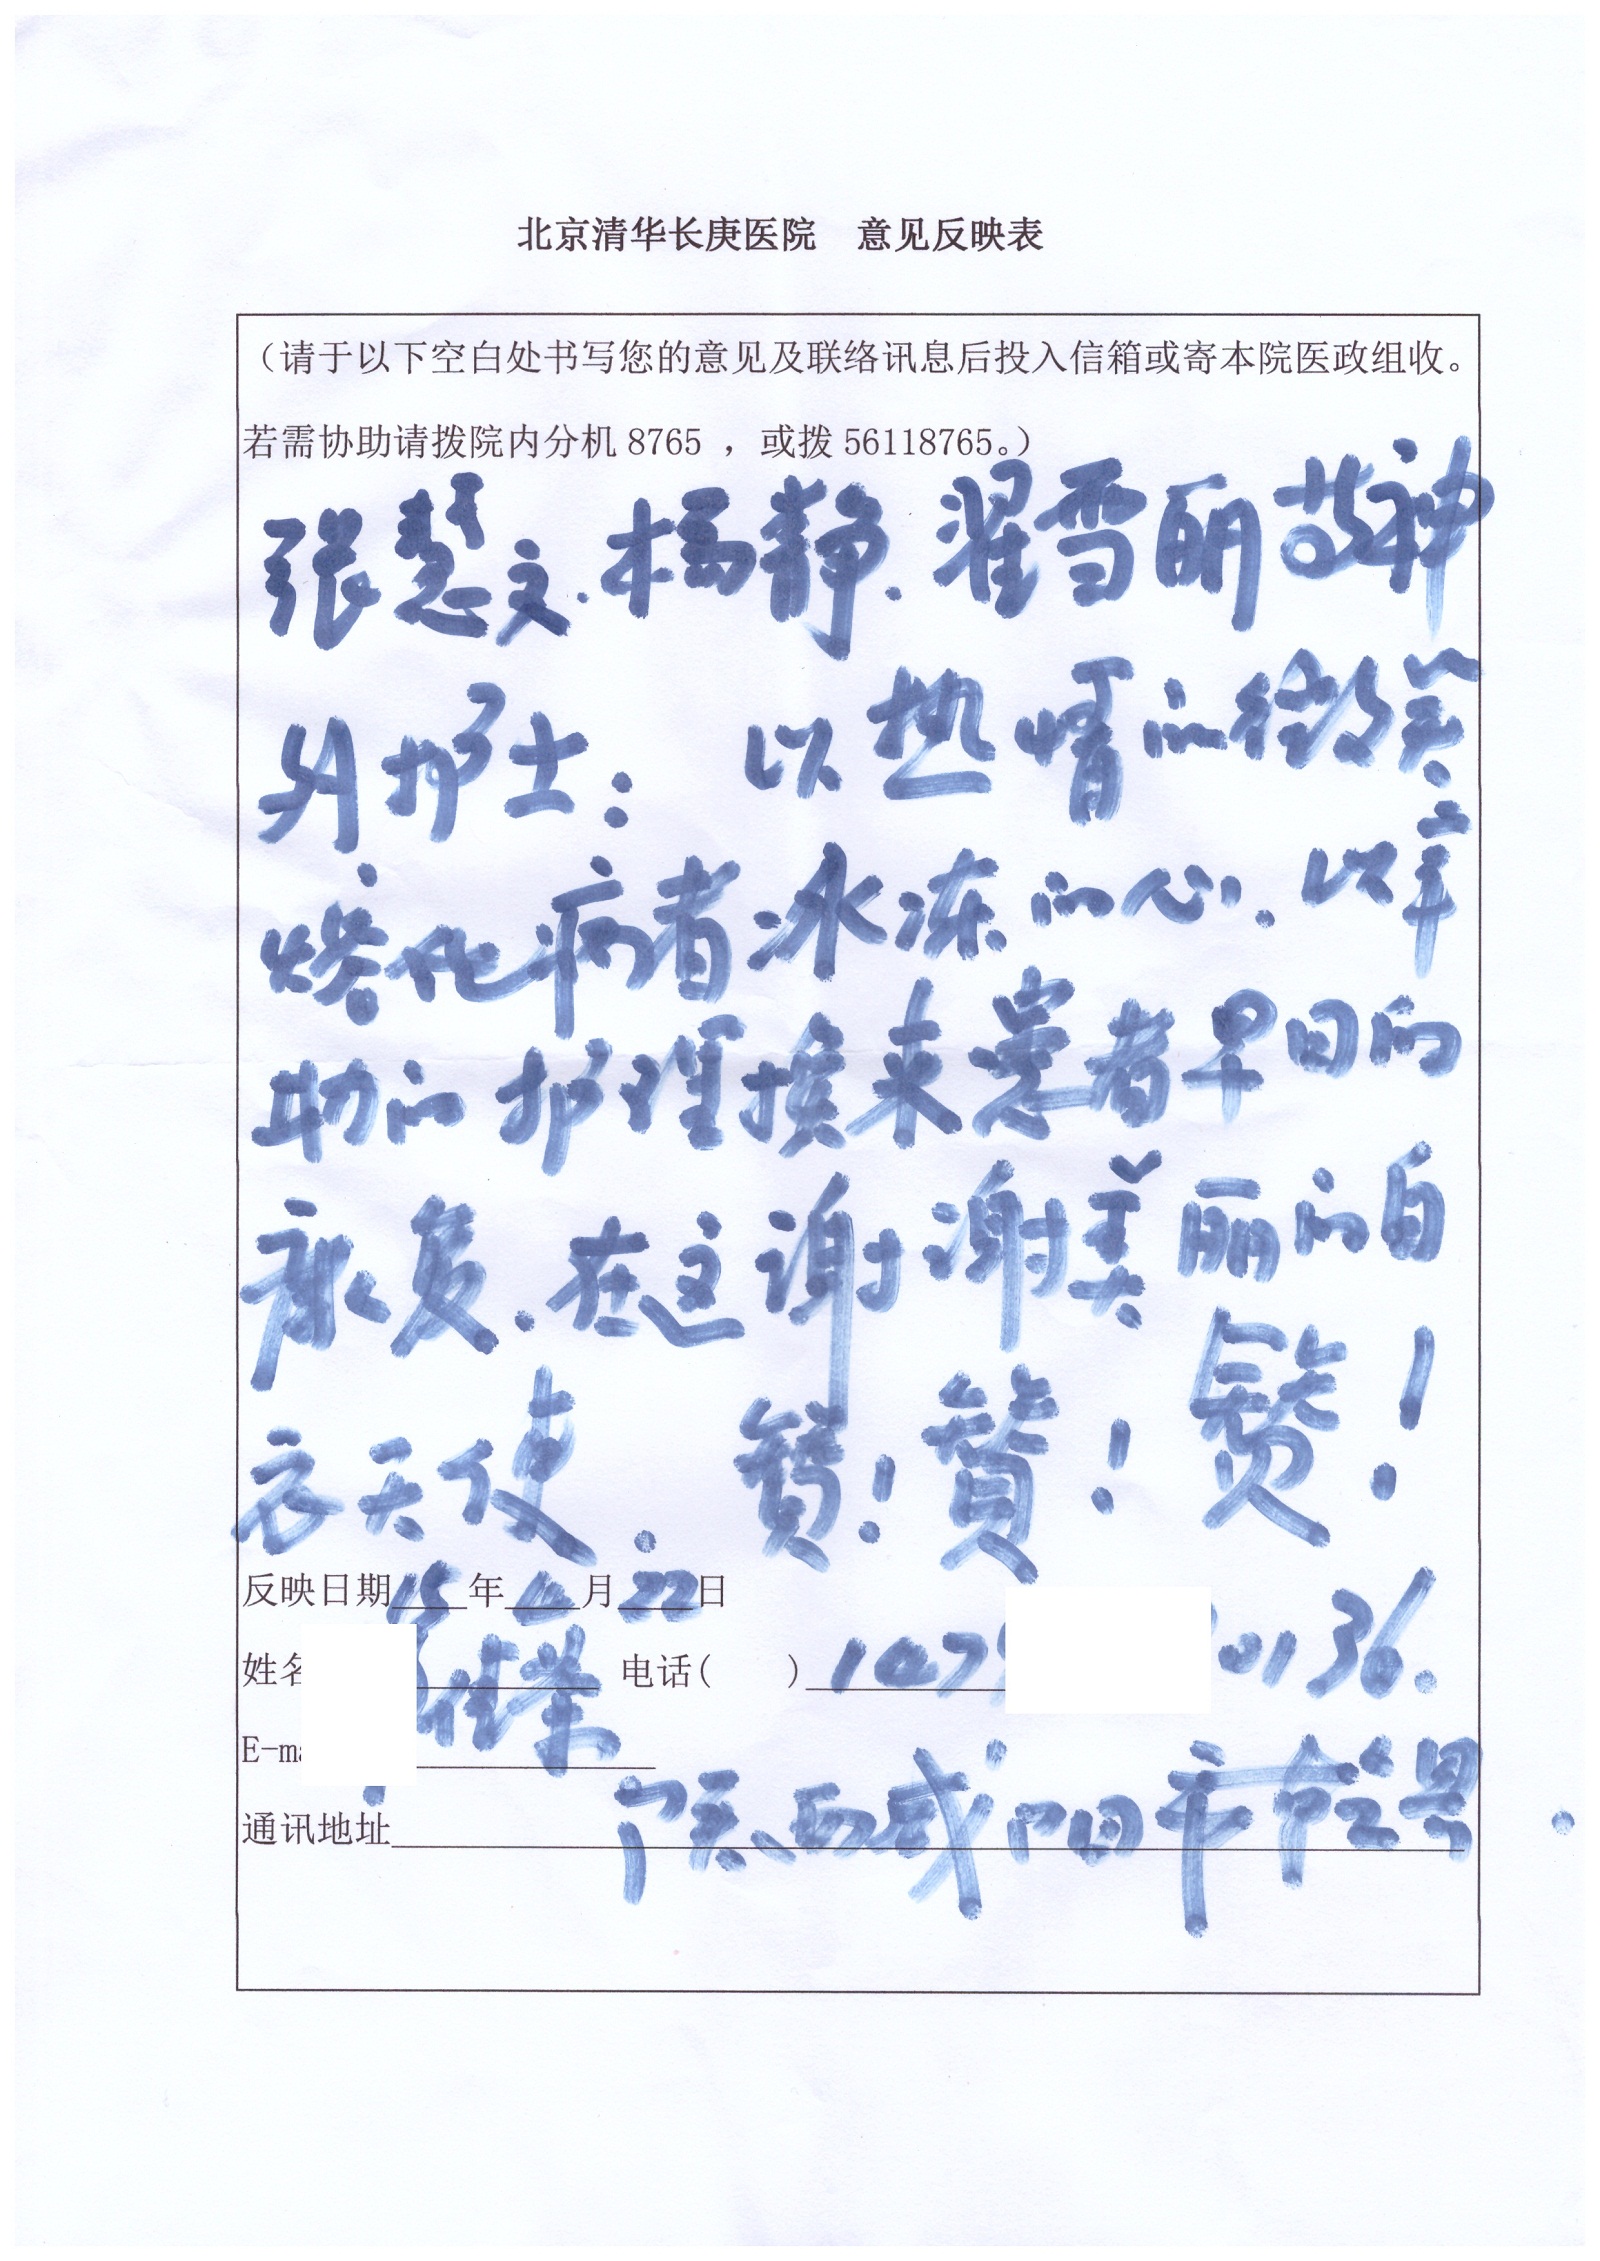 北京清华长庚医院 意见反映表
（请于以下空白处书写您的意见及联络讯息后投入信箱或寄本院医政组收。
若需协助请拨院内分机 8765 ，或拨 56118765。）
张慧文.杨静.翟雪丽等神
外护士： 以热情的微笑
熔化病者冰冻的心.以辛
勤的护理换来患者早日的
康复.在这谢谢美丽的白
衣天使. 赞！赞！赞！
反映日期 15 年 4 月 22 日
姓名 电话( ) 36.
E-ma
通讯地址 陕西咸阳市